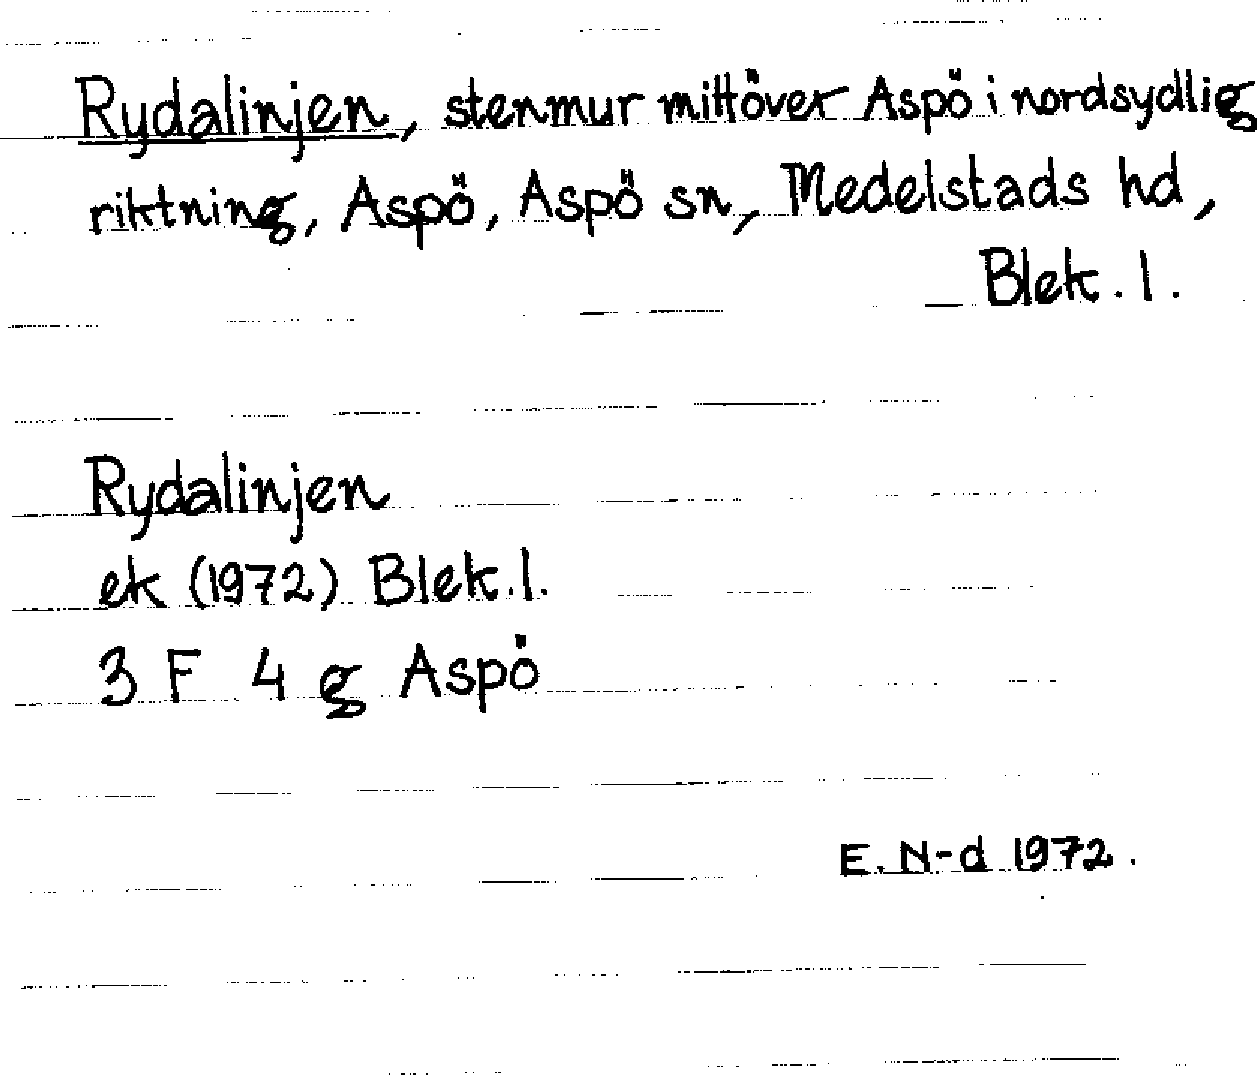 Rydalinjen, stenmur mittöver Aspö i nordsydlig
riktning, Aspö, Aspö sn, Medelstads hd,
Blek. l.
Rydalinjen
ek (1972) Blek. l.
3 F 4 g Aspö
E. N-d 1972.